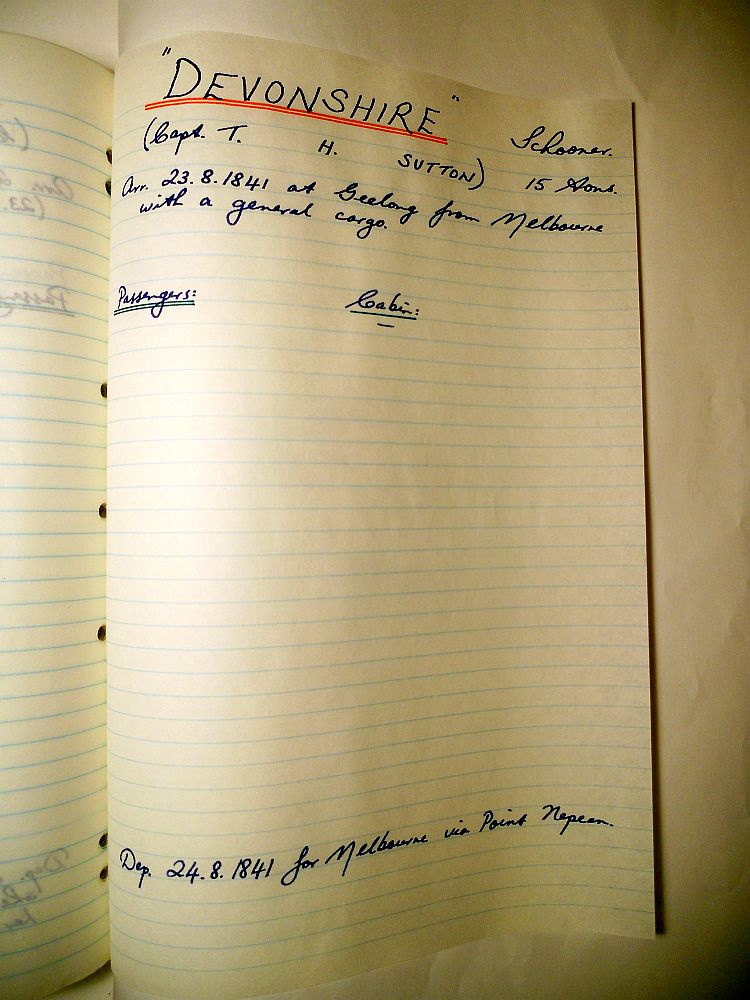 "DEVONSHIRE"
(Capt. T. H. SUTTON) Schooner.
15 tons.
Arr. 23.8.1841 at Geelong from Melbourne
with a general cargo.
Passengers: Cabin:
—
Dep. 24.8.1841 for Melbourne via Point Nepean.